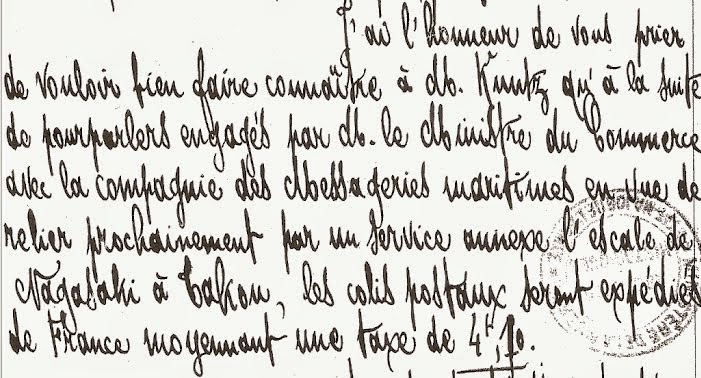 J'ai l'honneur de vous prier
de vouloir bien faire connaître à M. Kuntz qu'à la suite
de pourparlers engagés par M. le Ministre du Commerce
avec la compagnie des Messageries maritimes en vue de
relier prochainement par un service annexe l'escale de
Nagasaki à Takou, les colis postaux seront expédiés
de France moyennant une taxe de 4f,70.